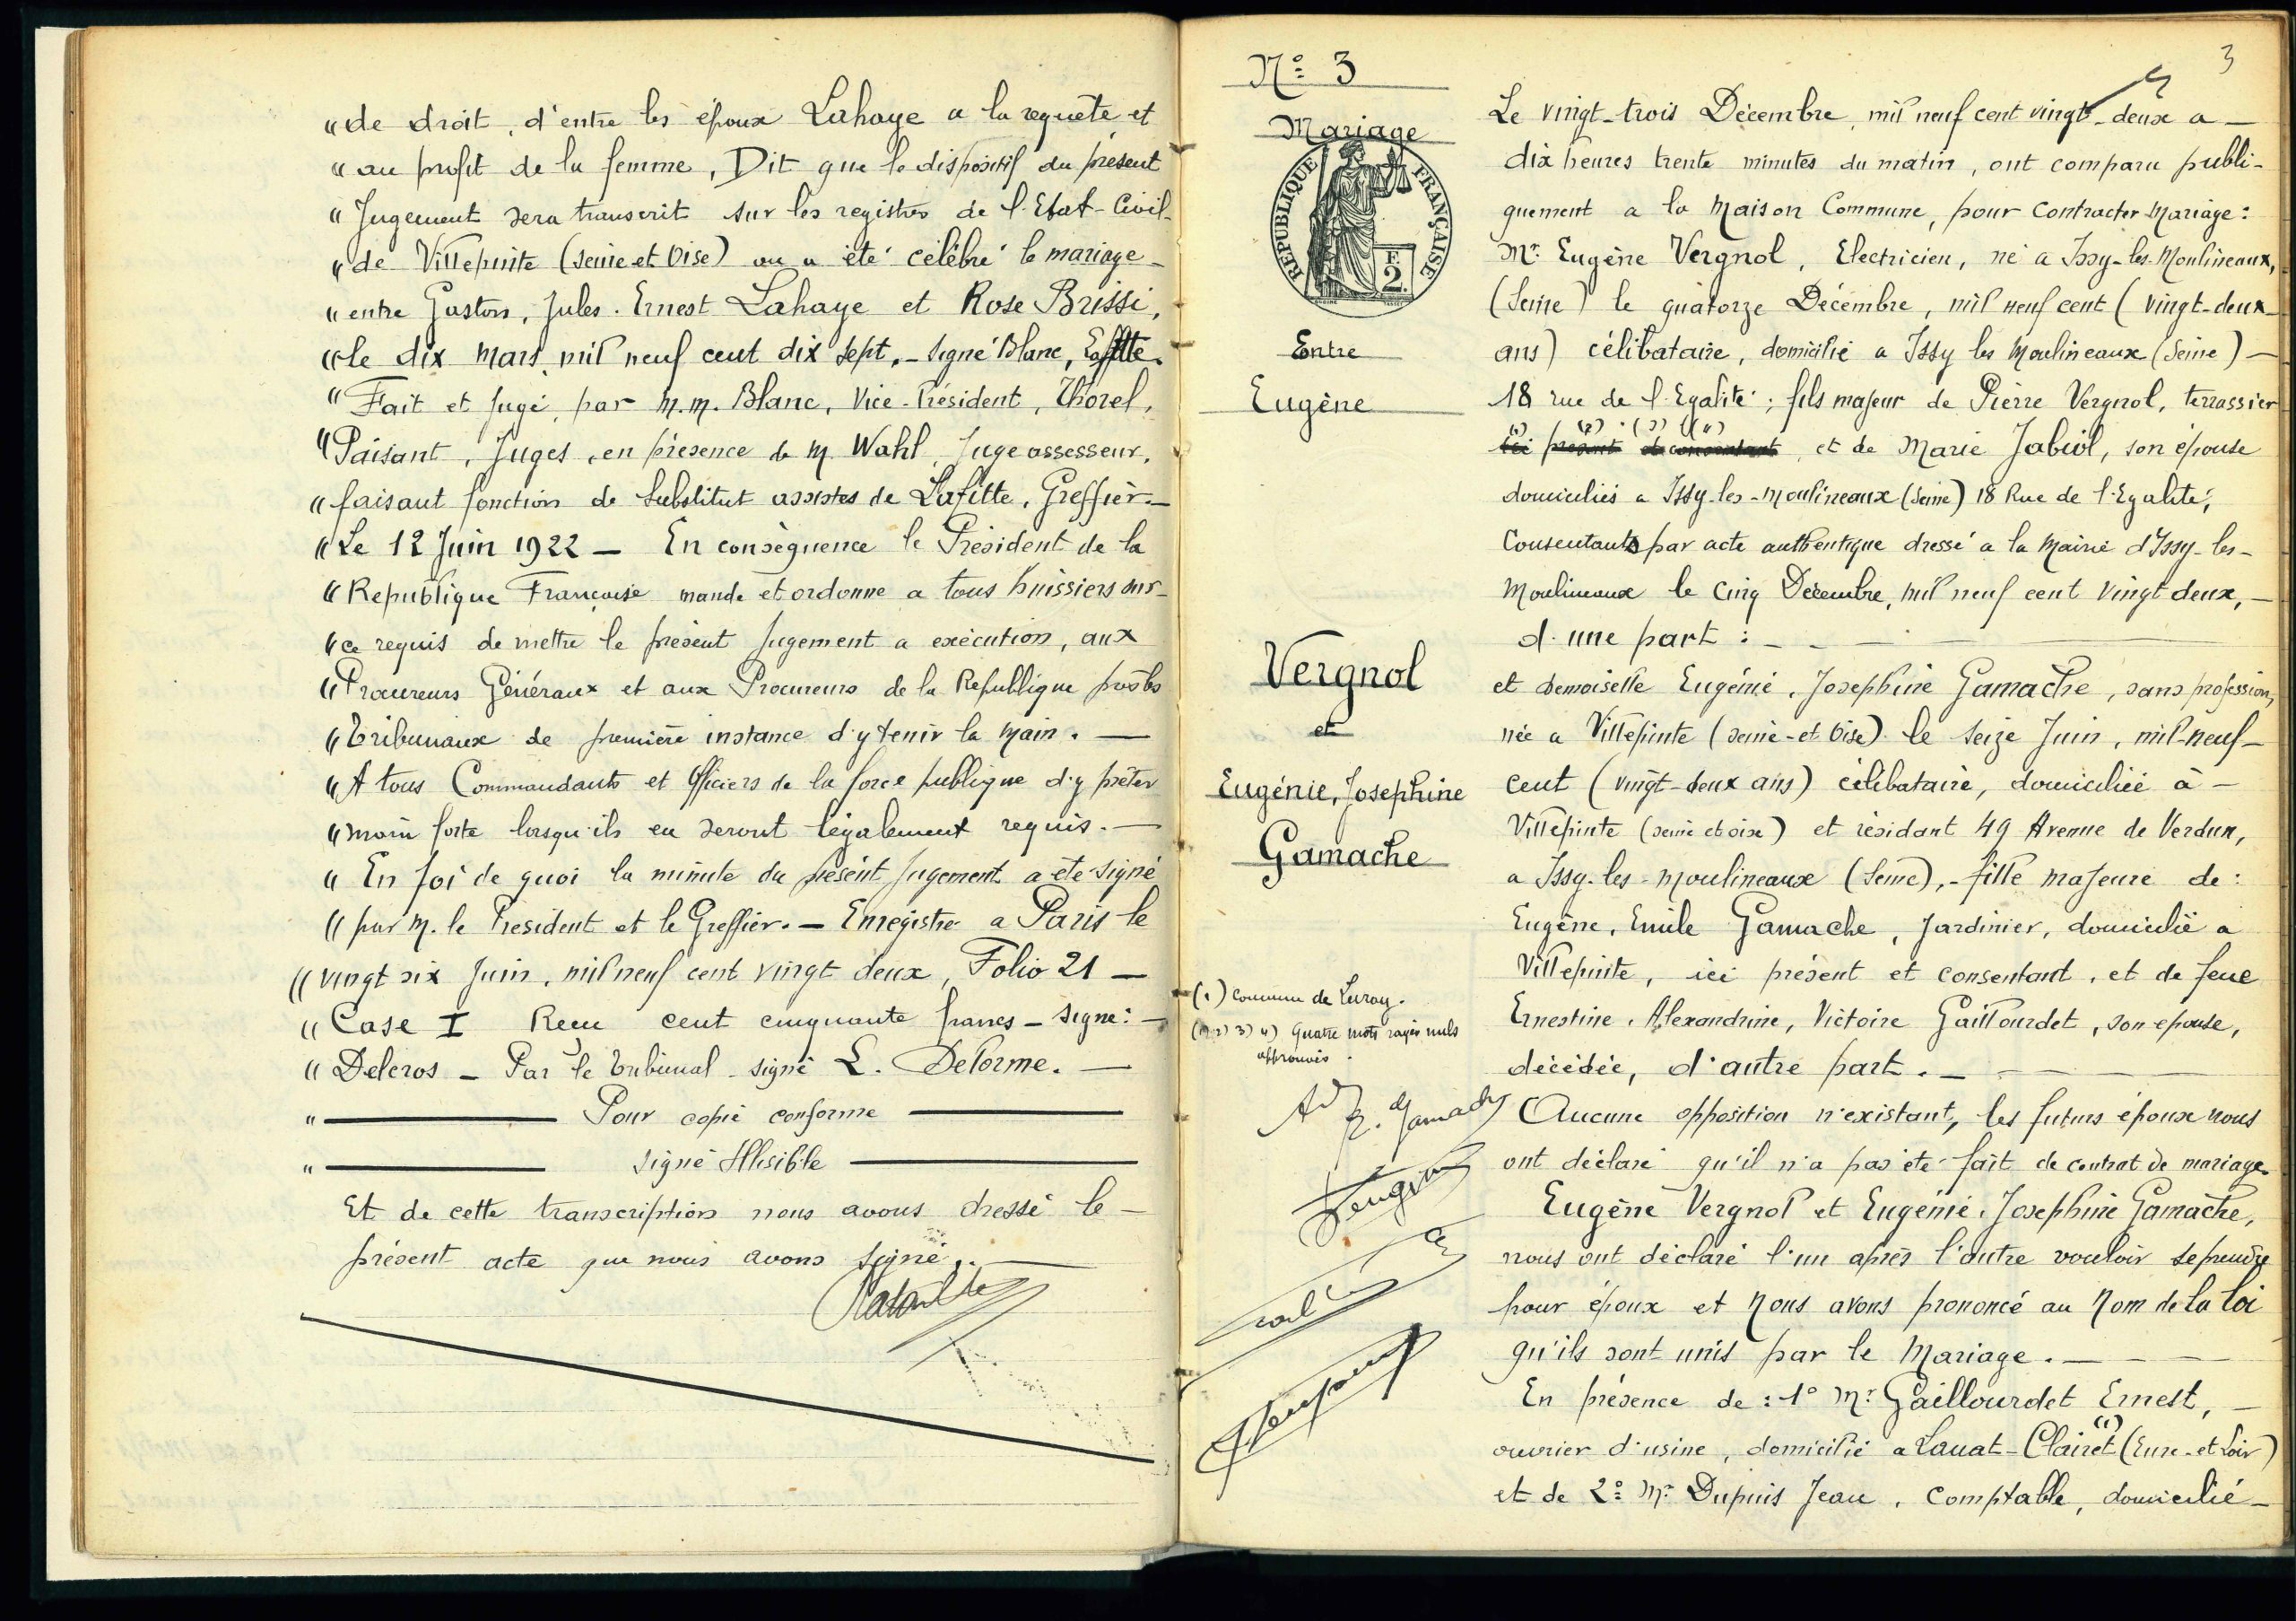 " de droit, d'entre les époux Lahaye a la requête et
" au profit de la femme, Dit que le dispositif du présent
" Jugement sera transcrit sur les registres de l'Etat-Civil-
" de Villepinte (Seine et Oise) ou a été célébré le mariage -
" entre Gaston, Jules. Ernest Lahaye et Rose Brissi,
" le dix Mars, mil neuf cent dix sept, - signé Blanc,
" Fait et Jugé, par M.M. Blanc, Vice-Président, Thorel,
" Paisant, Juges, en présence de M. Wahl, Juge assesseur,
" faisant fonction de Substitut assistés de Lafitte, Greffier. -
" Le 12 Juin 1922 - En conséquence le Président de la
" Republique Française mande et ordonne a tous huissiers sur-
" ce requis de mettre le présent Jugement a exécution, aux
" Procureurs Généraux et aux Procureurs de la Republique près les
" Tribunaux de première instance d'y tenir la Main. -
" A tous Commandants et Officiers de la force publique d'y prêter
" main forte lorsqu'ils en seront légalement requis. -
" En foi de quoi la minute du présent Jugement a été signé
" par M. le Président et le Greffier. - Enregistré a Paris le
" vingt six Juin, mil neuf cent vingt deux, Folio 21 -
" Case I Reçu cent cinquante francs - Signé: -
" Delcros - Par le Tribunal - signé L. Delorme. -
" Pour copie conforme
" signé Illisible
Et de cette transcription nous avons dressé le -
présent acte que nous avons signé. -
3
N° 3
Mariage
RÉPUBLIQUE FRANÇAISE
F.
2.
Entre
Eugène
Vergnol
et
Eugénie, Josephine
Gamache
(1) commune de Luray.
(1) 2) 3) 4) Quatre mots rayés nuls
approuvés.
E. Gamache
Le vingt-trois Décembre, mil neuf cent vingt-deux a -
dix heures trente minutes du matin, ont comparu publi-
quement a la Maison Commune, pour contracter Mariage:
Mr. Eugène Vergnol, Electricien, né a Issy-les-Moulineaux,
(Seine) le quatorze Décembre, mil neuf cent (vingt-deux-
ans) célibataire, domicilié a Issy les Moulineaux (Seine) -
18 rue de l'Egalité; fils majeur de Pierre Vergnol, terrassier
(1) (2) (3) (4)
ici présent et consentant, et de Marie Jabiol, son épouse
domiciliés a Issy-les-Moulineaux (Seine) 18 Rue de l'Egalité,
Consentants par acte authentique dressé a la Mairie d'Issy-les-
Moulineaux le cinq Décembre, mil neuf cent vingt deux, -
d'une part: -
et demoiselle Eugénie, Josephine Gamache, sans profession,
née a Villepinte (Seine-et Oise) le seize Juin, mil-neuf-
cent (vingt-deux ans) célibataire, domiciliée à -
Villepinte (seine et oise) et résidant 49 Avenue de Verdun,
a Issy-les-Moulineaux (Seine), - fille majeure de:
Eugène, Emile Gamache, Jardinier, domicilié a
Villepinte, ici présent et consentant, et de feue
Ernestine, Alexandrine, Victoire Gaillourdet, son epouse,
décédée, d'autre part. -
Aucune opposition n'existant, les futurs époux nous
ont déclaré qu'il n'a pas été fait de contrat de mariage.
Eugène Vergnol et Eugénie, Josephine Gamache,
nous ont déclaré l'un après l'autre vouloir se prendre
pour époux et Nous avons prononcé au Nom de la loi
qu'ils sont unis par le Mariage. -
En présence de: 1° Mr. Gaillourdet Ernest, -
(1)
ouvrier d'usine, domicilié a Lauat-Clairet (Eure-et Loir)
et de 2° Mr. Dupuis Jean, Comptable, domicilié -